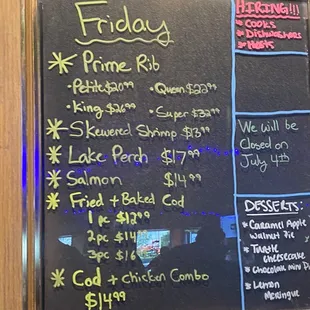 Friday
Prime Rib
Petite $20.99 Queen $22.99
King $26.99 Super $32.99
Skewered Shrimp $13.99
Lake Perch $17.99
Salmon $14.99
Fried + Baked Cod
1 pc $12.99
2 pc $14
3 pc $16
Cod + Chicken Combo
$14.99
HIRING!!!
Cooks
Dishwashers
Hosts
We will be
Closed on
July 4th
DESSERTS:
Caramel Apple
Walnut Pie
Turtle
Cheesecake
Chocolate Mini
Lemon
Meringue